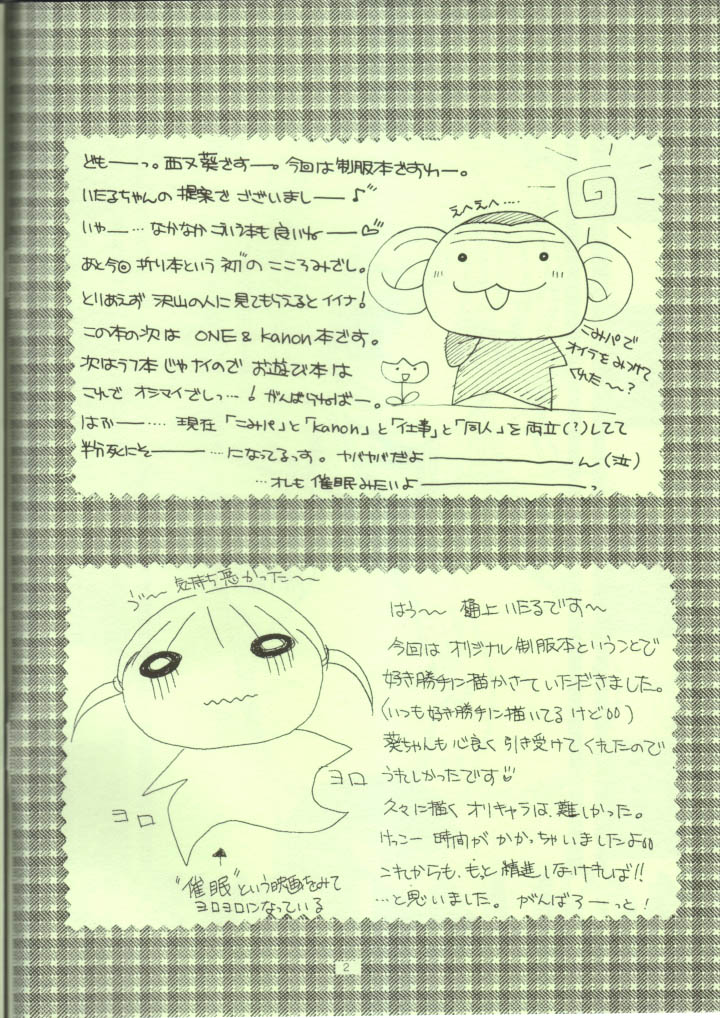 ども――っ。西又葵さす――。今回は制服本さすわー。
いたるちゃんの提案で ございまし――♪"
いや――… なかなかこういう本も良いね――♡"
あと今回 折り本という 初"の こころみでし。
とりあえず 沢山の人に見てもらえると イイナ!
この本の次は ONE & kanon本です。
次はラフ本じゃナイので お遊び本は
これで オシマイでしっ…! がんばらねばー。
はふー…… 現在「こみパ」と「kanon」と「仕事」と「同人」を両立(?)してて
粉死にそ―――…になってるっす。ヤバヤバだよ――――――ん(泣)
…オレも 催眠みたいよ――――――っ
えへえへ....
こみパで
オイラをみつけて
くれた〜?
う"〜 気持ち悪かった〜
ヨロ
ヨロ
"催眠"という映画をみて
ヨロヨロになっている
はう〜 樋上いたるです〜
今回は オリジナル制服本ということで
好き勝手に描かさていただきました。
(いつも好き勝手に描いてるけど)
葵ちゃんも心良く引き受けてくれたので
うれしかったです♡
久々に描く オリキャラは、難しかった。
けっこー 時間が かかっちゃいましたよ
これからも、もと精進しなければ!!
…と思いました。 がんばろーっと!
2